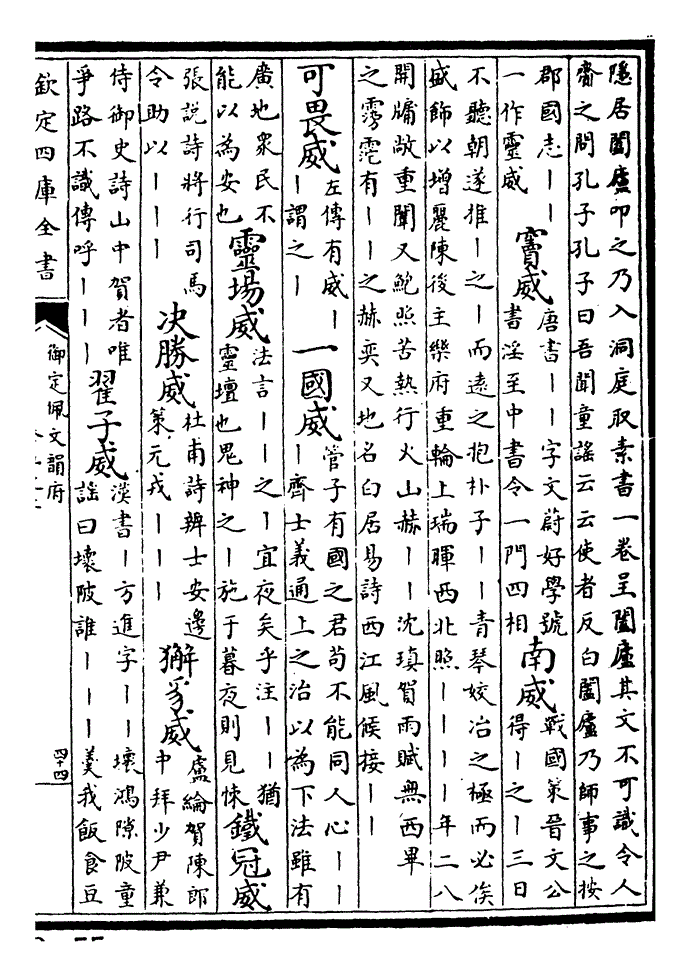 隱居闔廬叩之乃入洞庭取素書一卷呈闔廬其文不可識令人
齋之問孔子孔子曰吾聞童謠云云使者反白闔廬乃師事之按
郡國志丨丨
一作靈威
竇威
唐書丨丨字文蔚好學號
書淫至中書令一門四相
南威
戰國策晉文公
得丨之丨三日
不聽朝遂推丨之丨而遠之抱朴子丨丨青琴姣冶之極而必俟
盛飾以增麗陳後主樂府重輪上瑞暉西北照丨丨丨丨年二八
開牖敞重闈又鮑照苦熱行火山赫丨丨沈瑱賀雨賦無西畢
之霶霓有丨丨之赫奕又地名白居易詩西江風候接丨丨
可畏威
左傳有威丨
丨謂之丨
一國威
管子有國之君苟不能同人心丨丨
丨齊士義通上之治以為下法雖有
廣地衆民不
能以為安也
靈場威
法言丨丨之丨宜夜矣乎注丨丨猶
靈壇也鬼神之丨施于暮夜則見悚
鐵冠威
張說詩將行司馬
令助以丨丨丨
决勝威
杜甫詩辨士安邊
策元戎丨丨丨
獬豸威
盧綸賀陳郎
中拜少尹兼
侍御史詩山中賀者唯
爭路不識傳呼丨丨丨
翟子威
漢書丨方進字丨丨壞鴻隙陂童
謠曰壞陂誰丨丨丨羹我飯食豆
欽定四庫全書
御定佩文韻府
四十四